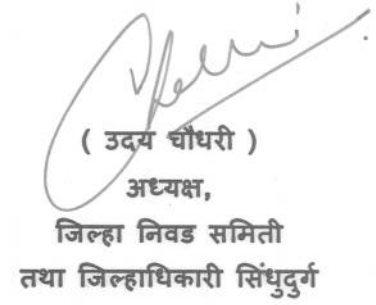 ( उदय चौधरी )
अध्यक्ष,
जिल्हा निवड समिती
तथा जिल्हाधिकारी सिंधुदुर्ग